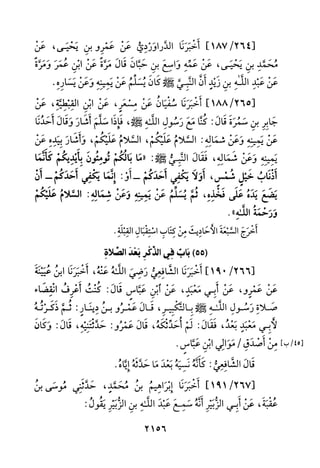 [١٨٧/٢٦٤] أَخْبَرَنَا الدَّراوَرْدِيُّ عَنْ عَمْرِو بنِ يَحْيَى، عَنْ
مُحَمَّدِ بنِ يَحْيَى، عَنْ عَمِّهِ وَاسِعِ بنِ حَبَّانَ قَالَ مَرَّةً عَنْ ابْنِ عُمَرَ وَمَرَّةً
عَنْ عَبْدِ اللَّهِ بنِ زَيْدٍ أَنَّ النَّبِيَّ ﷺ كَانَ يُسَلِّمُ عَنْ يَمِينِهِ وَعَنْ يَسارِهِ.
[١٨٨/٢٦٥] أَخْبَرَنَا سُفْيَانُ عَنْ مِسْعَرٍ، عَنْ ابْنِ القِبْطِيَّةِ، عَنْ
جابِرِ بنِ سَمُرَةَ قَالَ: كُنَّا مَعَ رَسُولِ اللَّهِ ﷺ، فَإِذَا سَلَّمَ أَشَارَ وَقَالَ أَحَدُنَا
عَنْ يَمِينِهِ وَعَنْ شمالِهِ: السلامُ عَلَيْكُمْ، السلامُ عَلَيْكُمْ، وَأَشَارَ بِيَدِهِ عَنْ
يَمِينِهِ وَعَنْ شِمَالِهِ، فَقَالَ النَّبِيُّ ﷺ: «مَا بَالُكُمْ تُومِئُونَ بِأَيْدِيكُمْ كَأَنَّهَا
أَذْنَابُ خَيْلٍ شُمْسٍ، أَوَلَا يَكْفِي أَحَدَكُمْ ــ أَوْ إِنَّما يَكْفِي أَحَدَكُمْ ــ أَنْ
يَضَعَ يَدَهُ عَلَى فَخِذِهِ، ثُمَّ يُسَلِّمُ عَنْ يَمِينِهِ وَعَنْ شِمَالِهِ: السلامُ عَلَيْكُمْ
وَرَحْمَةُ اللَّهِ».
أَخْرَجَ السَّبْعَةَ الأَحَادِيثَ مِنْ كِتَابِ اسْتِقْبَالِ القِبْلَةِ.
(٥٥) بَابٌ فِي الذِّكْرِ بَعْدَ الصَّلَاةِ
[١٩٠/٢٦٦] أَخْبَرَنَا الشَّافِعِيُّ رَضِيَ اللَّهُ عَنْهُ، أَخْبَرَنَا ابنُ عُيَيْنَةَ
عَنْ عَمْرٍو، عَنْ أَبِي مَعْبَدٍ، عَنْ ابْنِ عَبَّاسٍ قَالَ: كُنْتُ أَعْرِفُ انْقِضَاءَ
صَلاةِ رَسُولِ اللَّهِ ﷺ بِالتَّكْبِيرِ، قَالَ عَمْرُو بنُ دِينَارٍ: ثُمَّ ذَكَرْتُهُ
لِأَبِي مَعْبَدٍ بَعْدُ، فَقَالَ: لَمْ أُحَدِّثْكَهُ، قَالَ عَمْرٌو: قَدْ حَدَّثْتَنِيهِ، قَالَ: وَكَانَ
[٤٥/ب] مِنْ أَصْدَقِ / مَوَالِي ابْنِ عَبَّاسٍ.
قَالَ الشَّافِعِيُّ: كَأَنَّهُ نَسِيَهُ بَعْدَ مَا حَدَّثَهُ إِيَّاهُ.
[١٩١/٢٦٧] أَخْبَرَنَا إِبْرَاهِيمُ بنُ مُحَمَّدٍ، حَدَّثَنِي مُوسَى بنُ
عُقْبَةَ، عَنْ أَبِي الزُّبَيْرِ أَنَّهُ سَمِعَ عَبْدَ اللَّهِ بنِ الزُّبَيْرِ يَقُولُ:
٢١٥٦